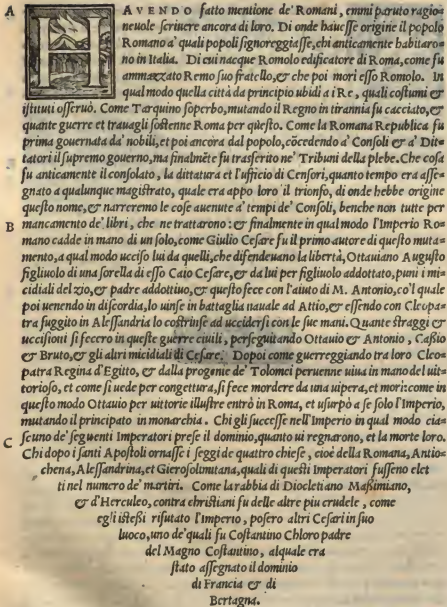 A
HAVENDO fatto mentione de' Romani, emmi paruto ragio=
neuole scriuere ancora di loro. Di onde hauesse origine il popolo
Romano a' quali popoli signoreggiasse, chi anticamente habitaro=
no in Italia. Di cui nacque Romolo edificatore di Roma, come fu
ammazzato Remo suo fratello, & che poi morì esso Romolo. In
qual modo quella città da principio ubidì a i Re, quali costumi &
istituti osseruò. Come Tarquino soperbo, mutando il Regno in tirannia fu cacciato, &
quante guerre et trauagli sostenne Roma per questo. Come la Romana Republica fu
prima gouernata da' nobili, et poi ancora dal popolo, cōcedendo a' Consoli & a' Dit=
tatori il supremo gouerno, ma finalmēte fu trasferito ne' Tribuni della plebe. Che cosa
fu anticamente il consolato, la dittatura et l'ufficio di Censori, quanto tempo era asse=
gnato a qualunque magistrato, quale era appo loro il trionfo, di onde hebbe origine
questo nome, & narreremo le cose auenute a' tempi de' Consoli, benche non tutte per
B mancamento de' libri, che ne trattarono: & finalmente in qual modo l'Imperio Ro=
mano cadde in mano di un solo, come Giulio Cesare fu il primo autore di questo muta=
mento, a qual modo ucciso lui da quelli, che difendeuano la libertà, Ottauiano Augusto
figliuolo di una sorella di esso Caio Cesare, & da lui per figliuolo addottato, punì i mi=
cidiali del zio, & padre addottiuo, & questo fece con l'aiuto di M. Antonio, co'l quale
poi uenendo in discordia, lo uinse in battaglia nauale ad Attio, & essendo con Cleopa=
tra fuggito in Alessandria lo costrinse ad uccidersi con le sue mani. Quante straggi &
uccisioni si feccro in queste guerre ciuili, perseguitando Ottauio & Antonio, Cassio
& Bruto, & gli altri micidiali di Cesare. Dopoi come guerreggiando tra loro Cleo=
patra Regina d'Egitto, & dalla progenie de' Tolomei peruenne uiua in mano del uit=
torioso, et come si uede per congettura, si fece mordere da una uipera, et morì: come in
questo modo Ottauio per uittorie illustre entrò in Roma, et usurpò a se solo l'Imperio,
mutando il principato in monarchia. Chi gli successe nell'Imperio in qual modo cia=
C scuno de' seguenti Imperatori prese il dominio, quanto ui regnarono, et la morte loro.
Chi dopo i santi Apostoli ornasse i seggi de quattro chiese, cioè della Romana, Antio=
chena, Alessandrina, et Gierosolimitana, quali di questi Imperatori fussero elet
ti nel numero de' martiri. Come la rabbia di Diocletiano Maßimiano,
& d'Herculeo, contra christiani fu delle altre piu crudele, come
egli isteßi rifutato l'Imperio, posero altri Cesari in suo
luoco, uno de'quali fu Costantino Chloro padre
del Magno Costantino, alquale era
stato assegnato il dominio
di Francia & di
Bertagna.